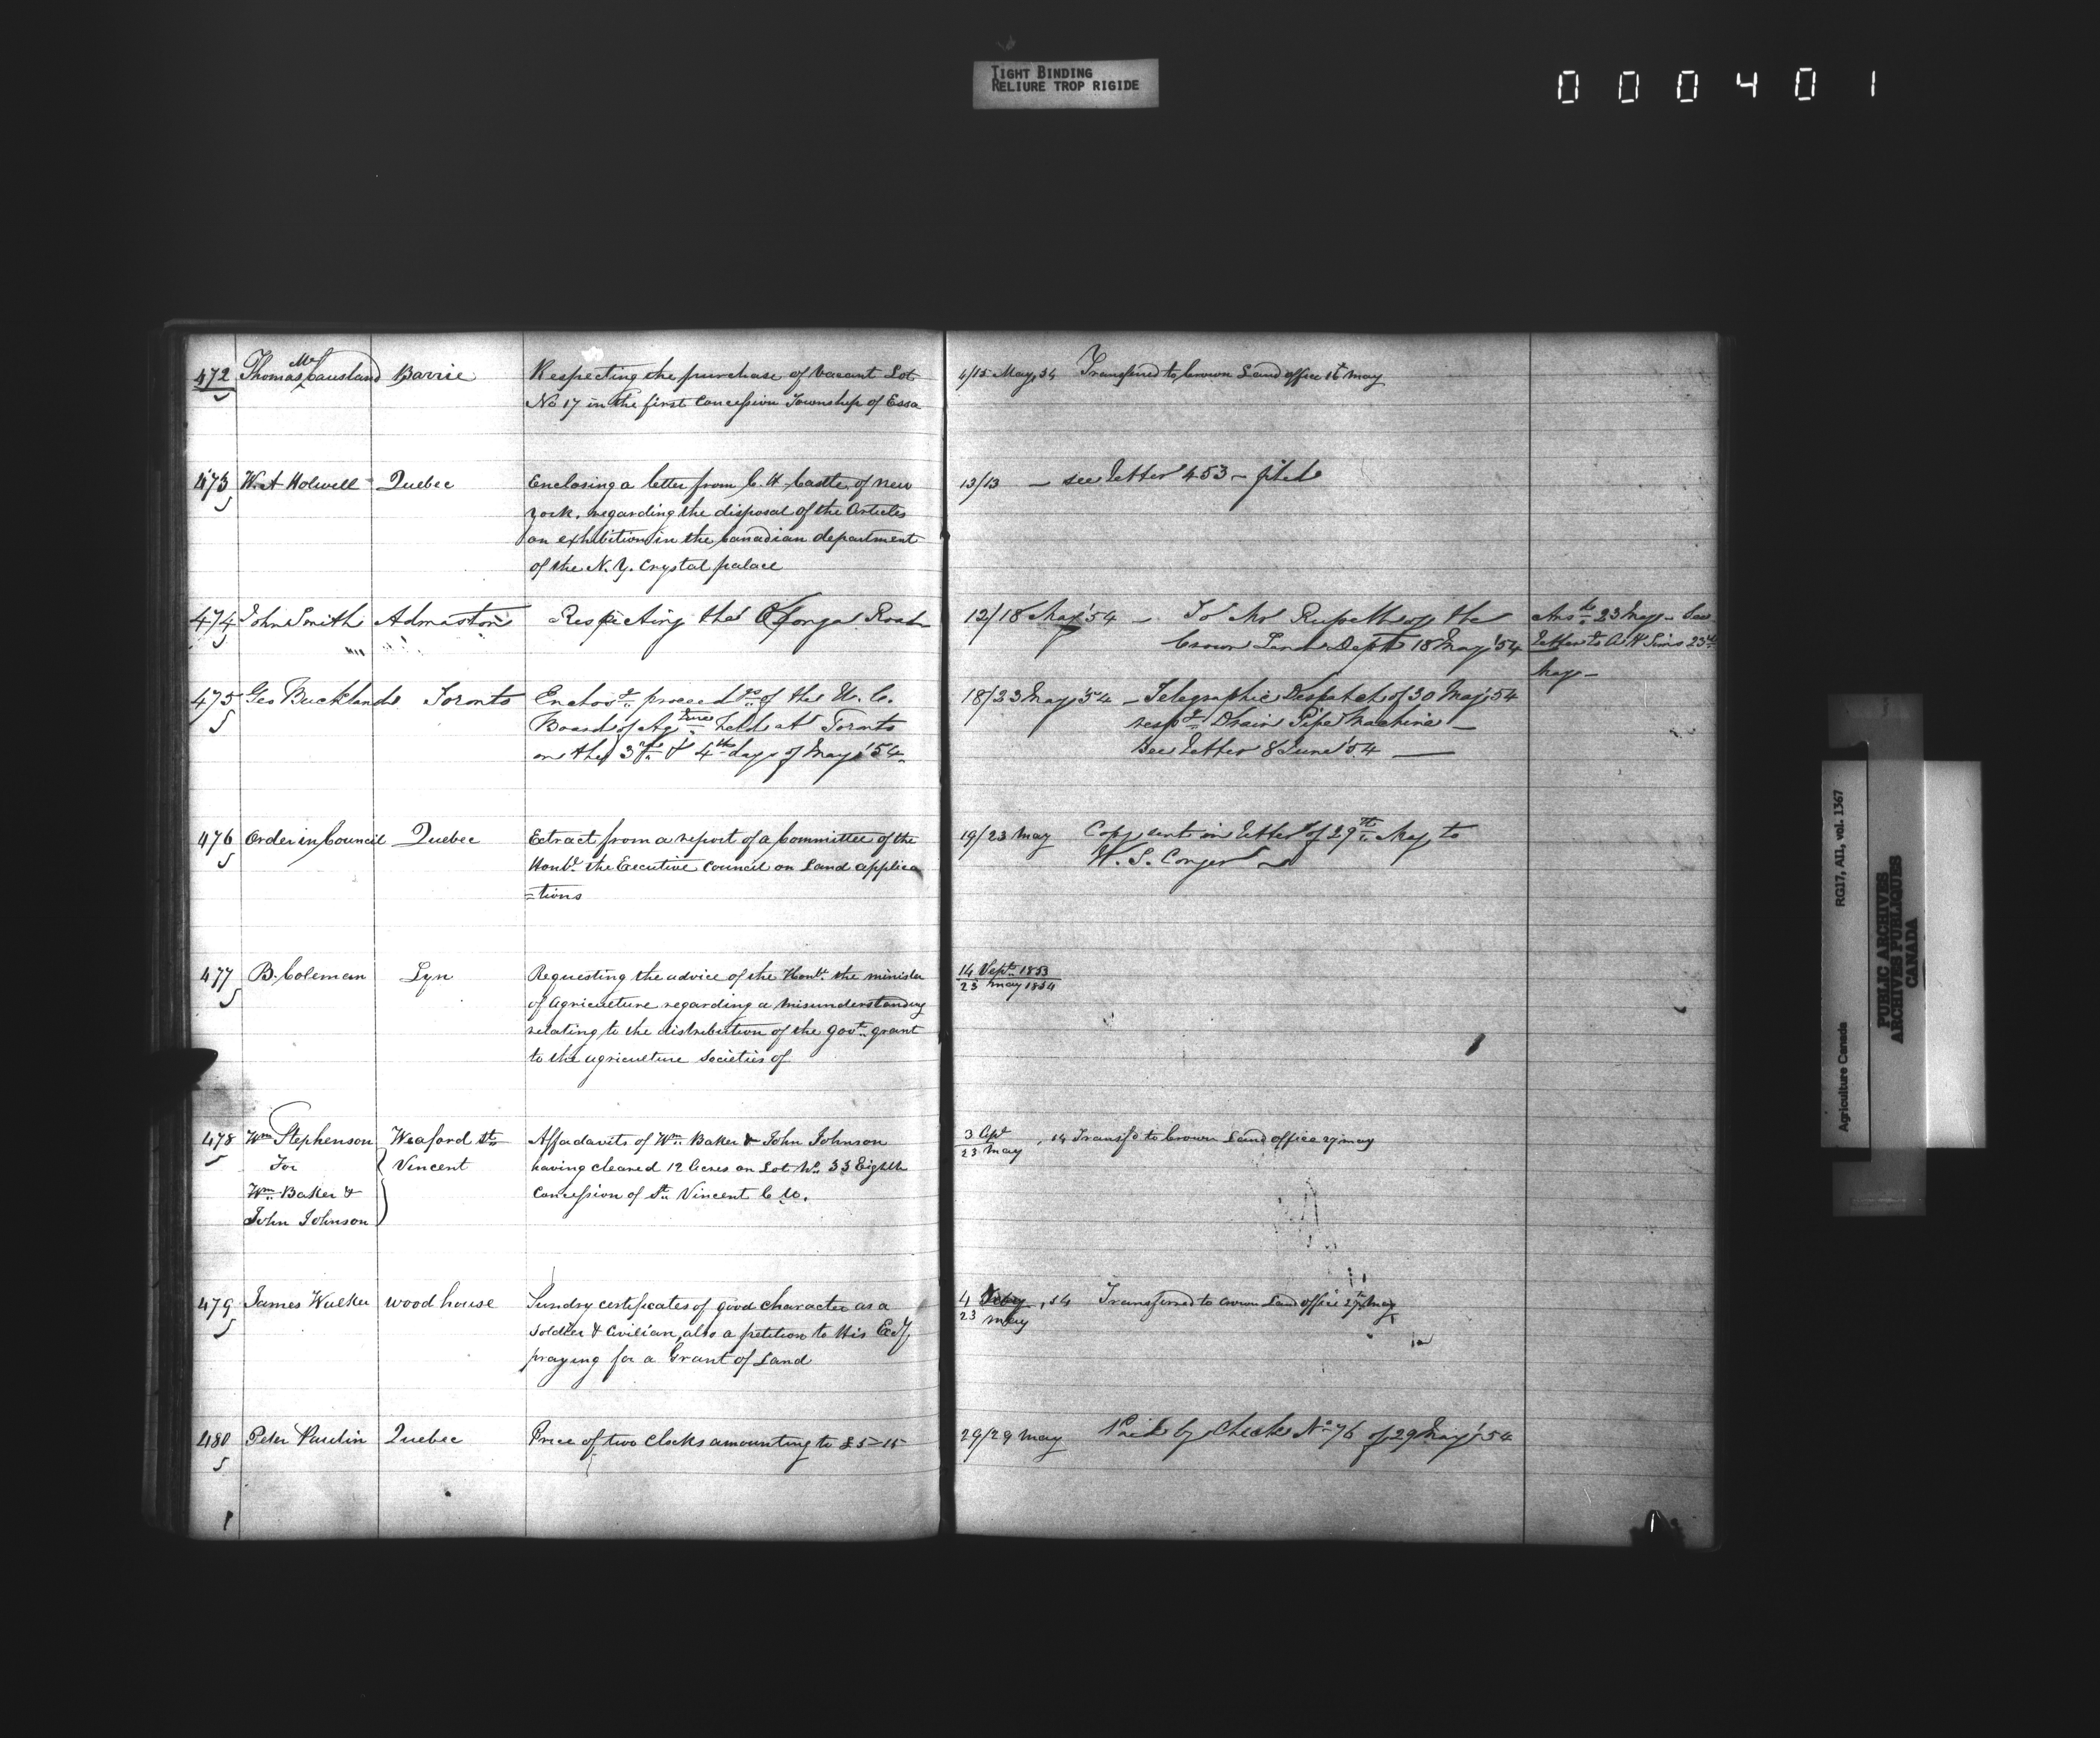 TIGHT BINDING
RELIURE TROP RIGIDE
000401
472 Thomas McCausland Barrie Respecting the purchase of Vacant Lot 6/15 May, 54 Transferred to Crown Land office 16 May
No 17 in the first Concession Township of Essa
473 W. A Holwell Quebec Enclosing a letter from C. H. Castle, of New 13/13 — see letter 453 – filed
York, regarding the disposal of the Articles
on exhibition in the Canadian department
of the N. Y. Crystal palace
474 John Smith Admaston Respecting the Road 12/18 May '54 — To Mr Russell of the Ansd 23 May – See
Crown Land Dept 18 May '54 letter to A. H Sims 23d
May –
475 Geo Buckland Toronto Enclosg proceedgs of the U. C. 18/23 May '54 – Telegraphic Despatch of 30 May '54
Board of Agture held at Toronto respg Drain Pipe Machine —
on the 3rd & 4th days of May '54 See letter 8 June '54 —
476 Order in Council Quebec Extract from a report of a Committee of the 19/23 May Copy sent in letter of 29th May to
Honble the Executive Council on Land applica W. S. Conger
=tions
477 B. Coleman Lyn Requesting the advice of the Honble the minister 14 Sept 1853
of Agriculture regarding a misunderstanding 23 May 1854
relating to the distribution of the govt grant
to the agriculture Societies of
478 Wm Stephenson Meaford St Affadavits of Wm Baker & John Johnson 3 Apl , 54 Transfd to Crown Land office 27 May
For Vincent having cleared 12 Acres on Lot No 33 Eighth 23 May
Wm Baker & Concession of St Vincent C. W.
John Johnson
479 James Walker Woodhouse Sundry certificates of good character as a 4 , 54 Transferred to Crown Land office 27th May
Soldier & Civilian, also a petition to His Exy 23 May
praying for a Grant of Land
480 Peter Paulin Quebec Price of two Clocks amounting to £5–15 29/29 May Paid by Check No 76 of 29 May '54
Agriculture Canada RG17, AII, vol. 1367
PUBLIC ARCHIVES
ARCHIVES PUBLIQUES
CANADA